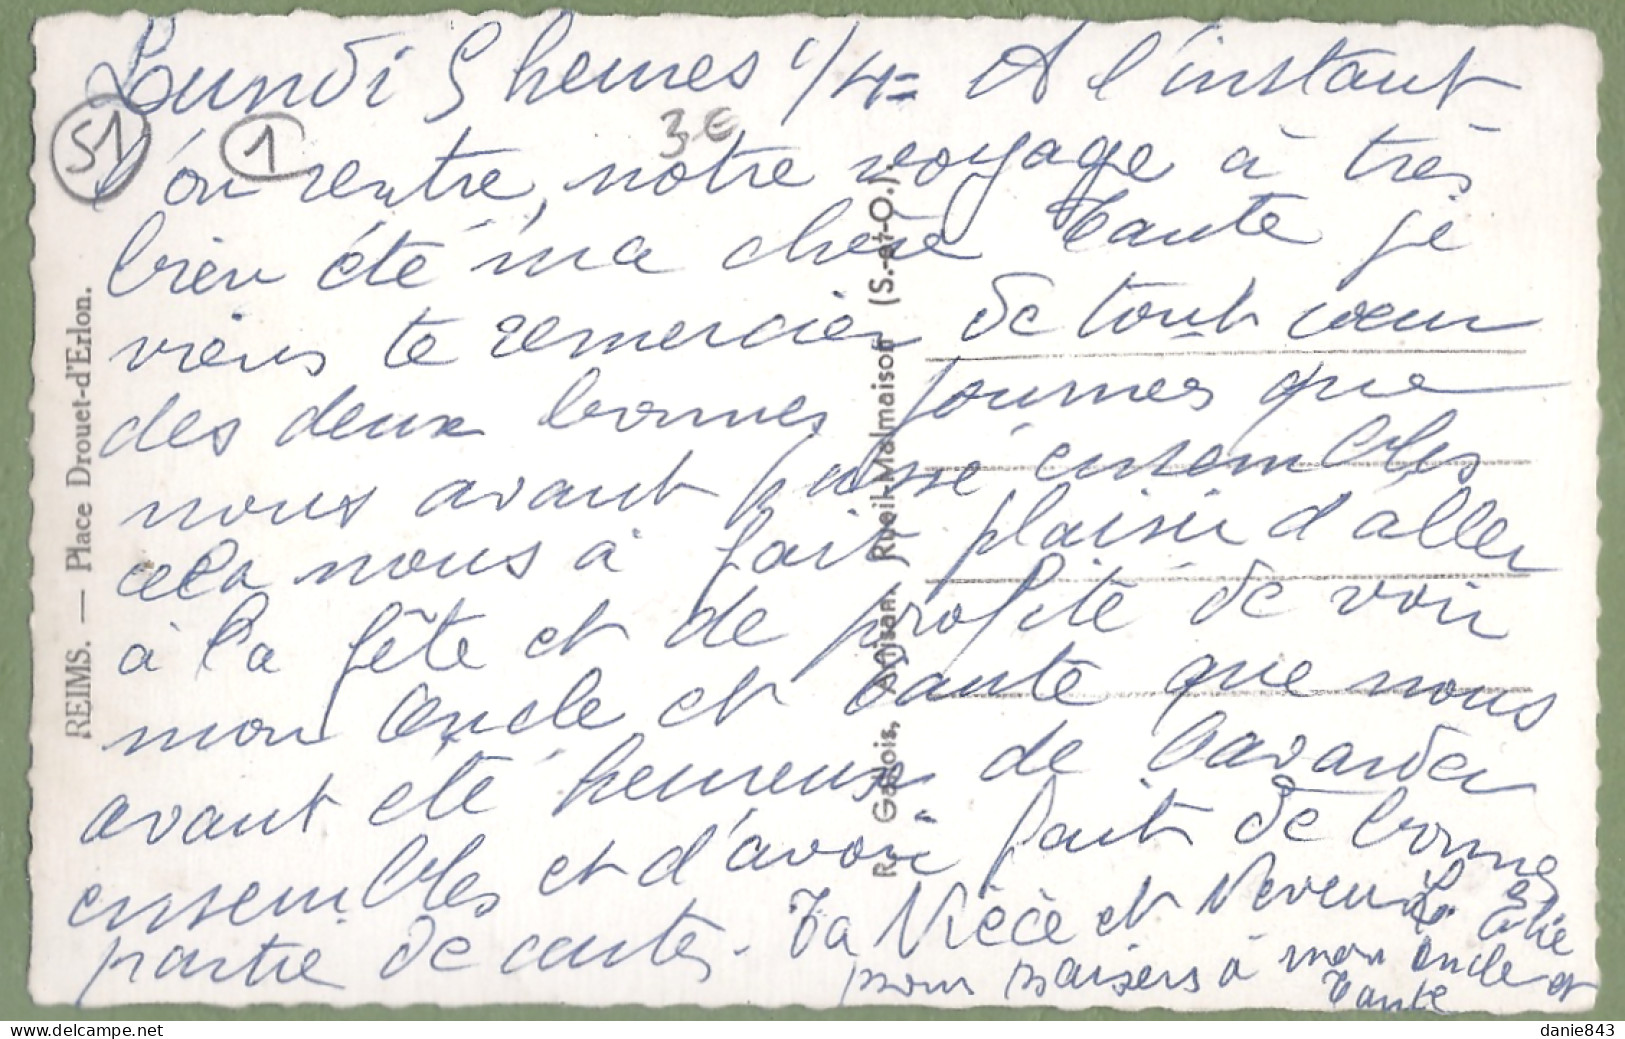 Lundi 5 heures 1/4 = A l'instant
l'on rentre, notre voyage à très
bien été ma chère tante je
viens te remercier de tout cœur
des deux bonnes journes que
nous avant passé ensembles
cela nous à fait plaisir d aller
à la fête et de profité de voir
mon Oncle et tante que nous
avant été heureux de bavarder
ensembles et d'avoir fait de bonnes
partie de cartes. Ta Nièce et Neveu
pour baisers à mon Oncle et
tante
51
1
3€
REIMS. — Place Drouet-d'Erlon.
R. Gallois, Artisan, Rueil-Malmaison (S.-et-O.).
danie843